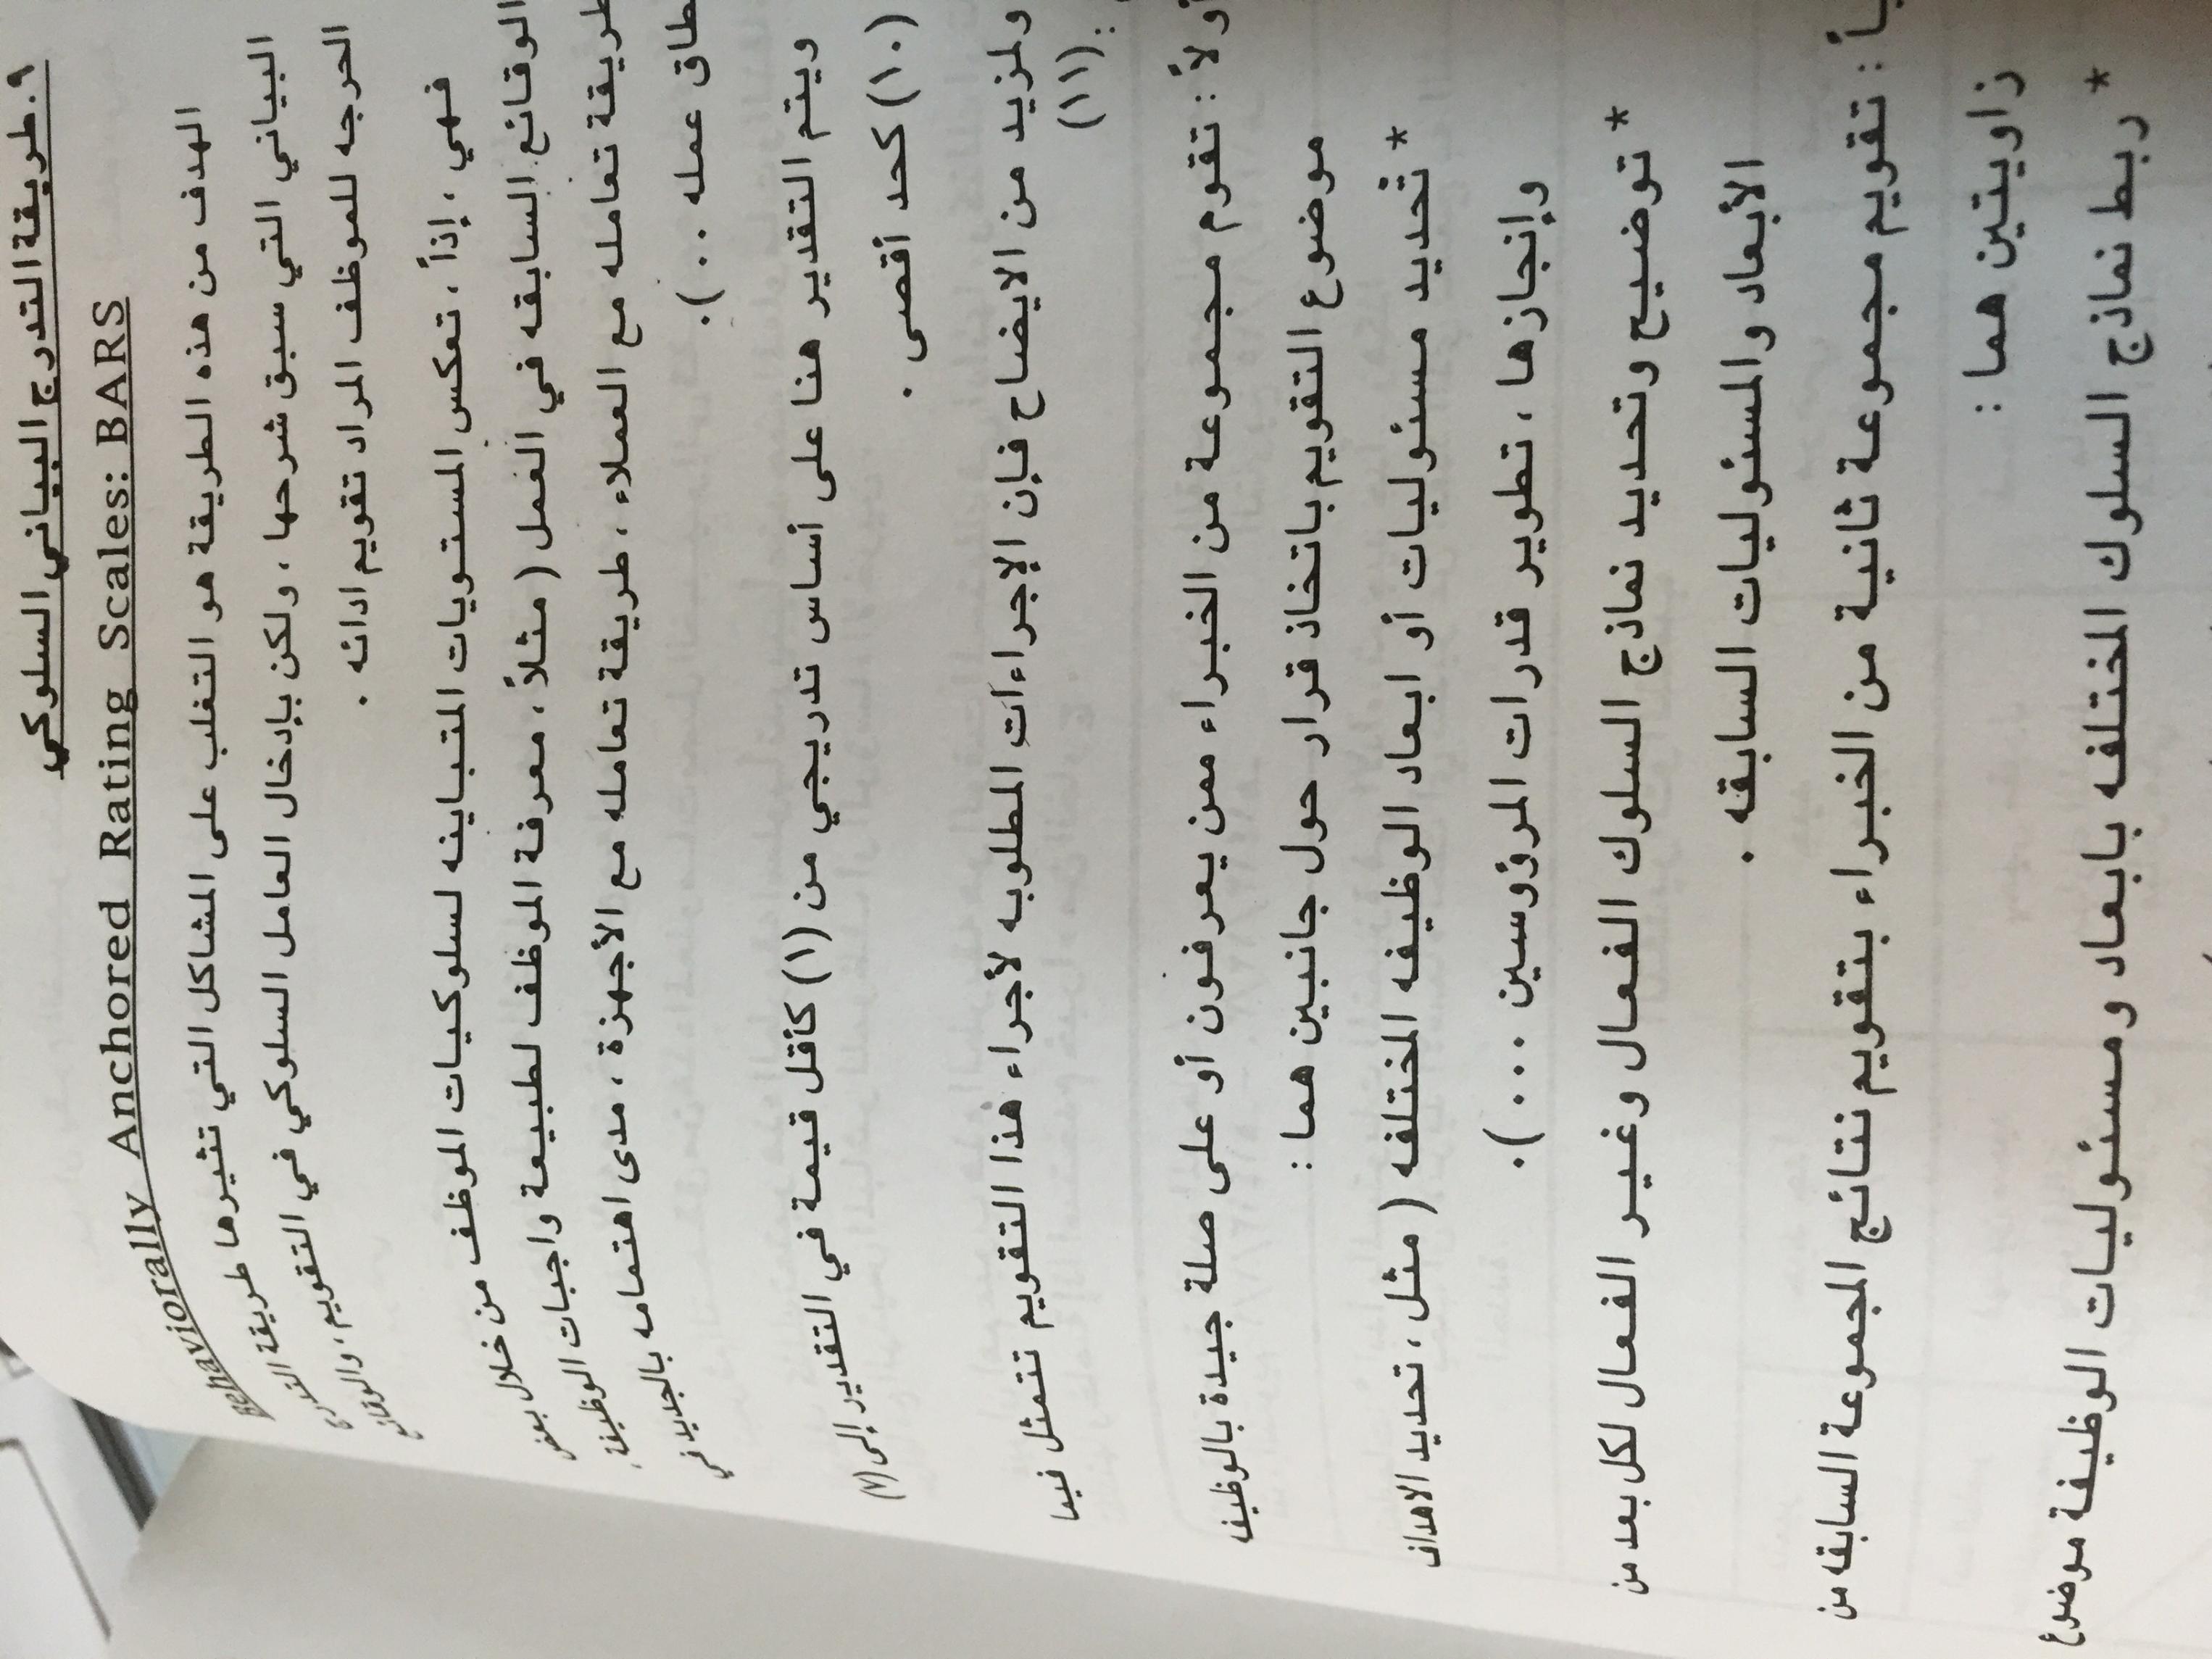 ٩. طريقة التدرج البياني السلوكي
Behaviorally Anchored Rating Scales: BARS
الهدف من هذه الطريقة هو التغلب على المشاكل التي تثيرها طريقة التدرج
البياني التي سبق شرحها ، ولكن بإدخال العامل السلوكي في التقويم ، والوقائع
الحرجه للموظف المراد تقويم ادائه .
فهي ، إذاً ، تعكس المستويات المتباينه لسلوكيات الموظف من خلال بعض
الوقائع السابقه في العمل ( مثلاً ، معرفة الموظف لطبيعة واجبات الوظيفة ،
طريقة تعامله مع العملاء ، طريقة تعامله مع الأجهزة ، مدى اهتمامه بالجديد في
نطاق عمله . . ) .
ويتم التقدير هنا على أساس تدريجي من (١) كأقل قيمة في التقدير إلى (٧)
(١٠) كحد أقصى .
ولمزيد من الايضاح فإن الإجراءات المطلوبه لأجراء هذا التقويم تتمثل فيما
(١١) :
أولاً : تقوم مجموعة من الخبراء ممن يعرفون أو على صلة جيدة بالوظيفه
موضوع التقويم باتخاذ قرار حول جانبين هما :
* تحديد مسئوليات أو ابعاد الوظيفه المختلفه ( مثل ، تحديد الاهداف
وإنجازها ، تطوير قدرات المرؤوسين . . . ) .
* توضيح وتحديد نماذج السلوك الفعال وغير الفعال لكل بعد من
الأبعاد والمسئوليات السابقه .
: تقويم مجموعة ثانية من الخبراء بتقويم نتائج المجموعة السابقه من
زاويتين هما :
* ربط نماذج السلوك المختلفه بابعاد ومسئوليات الوظيفة موضوع